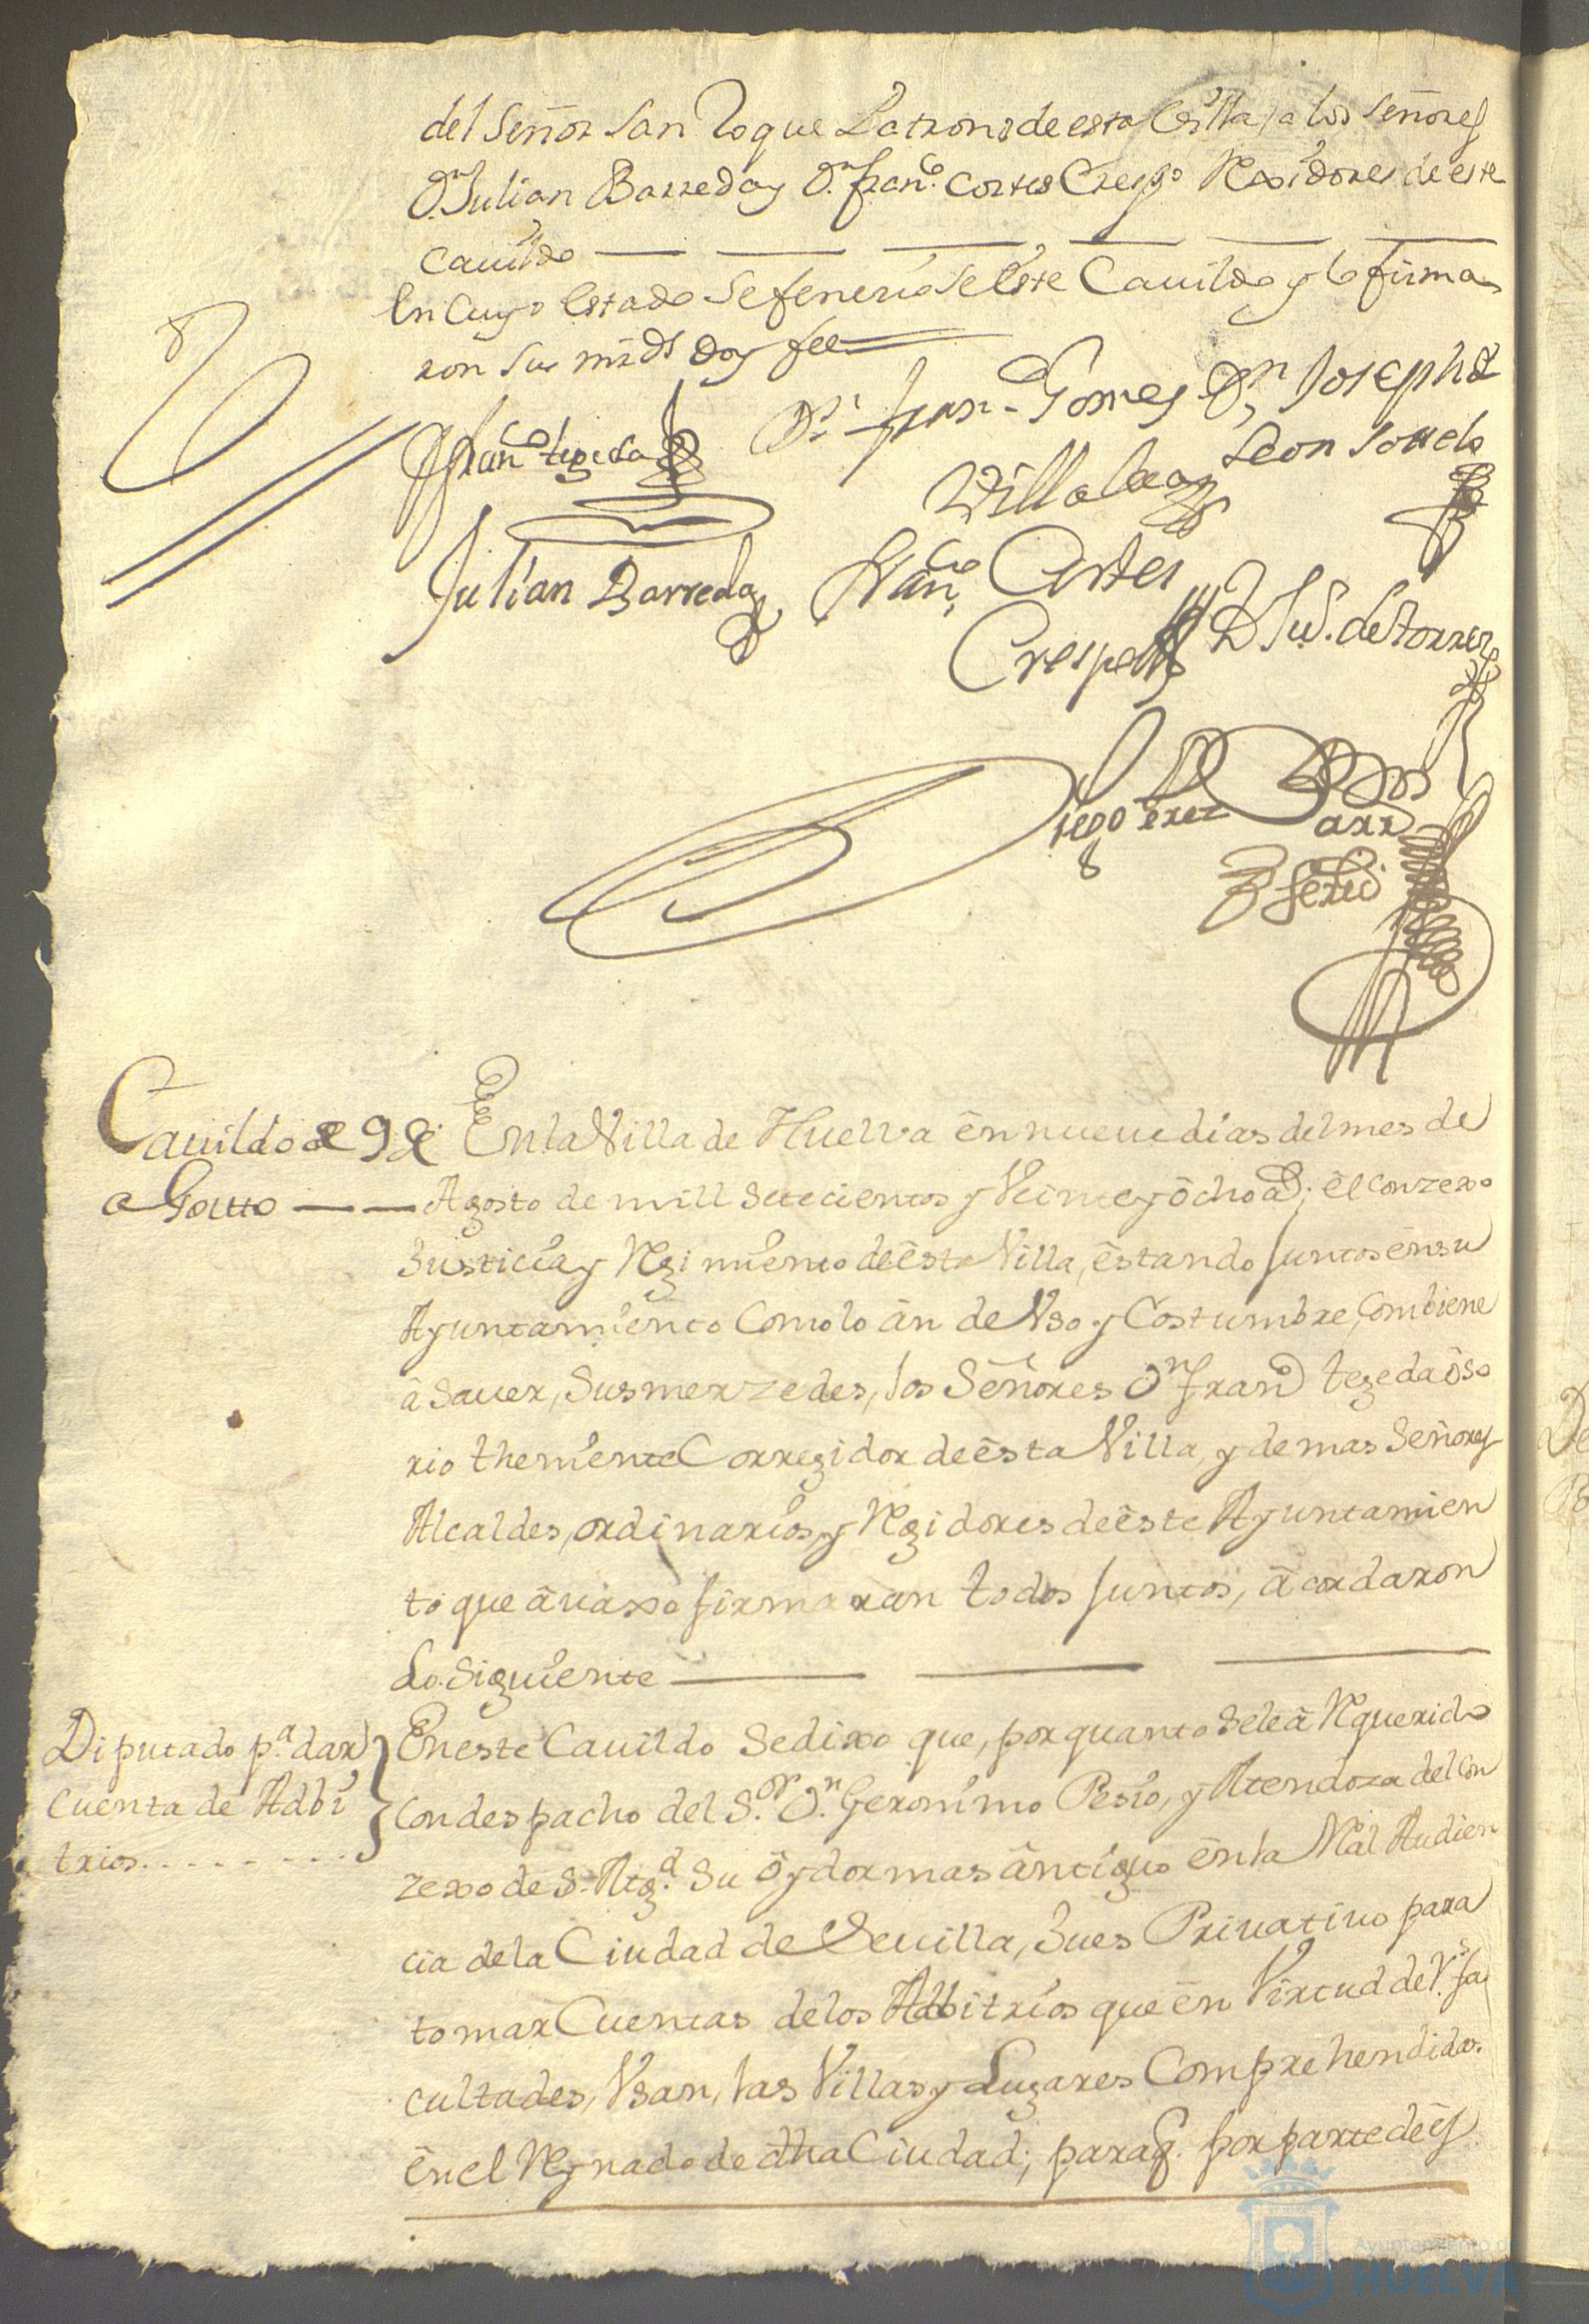 del Señor San Roque Patrono de esta Villa, a los Señores
Dn. Julian Barreda y Dn. Franco. Cortes Crespo Rexidores de este
Cauildo
En Cuyo Estado Se fenecio Se este Cauildo y lo firma
ron Sus mrds doy fee
Franco tegeda
Dn. Fran.co Gomes
Dn Joseph de
Villalua
Leon Sotuelo
Julian Barreda
Franco. Cortes
Crespo
D Ju. de Torres
Diego Perez
Barr
Cauildo de 9 de
En la Villa de Huelva en nueue dias del mes de
agosto
Agosto de mill Setecientos y Veinte y ôcho as; êl conzexo
Justicia y Regimiento deêsta Villa, êstando Juntos ênsu
Ayuntamiento Como lo ân de Vso y Costumbre, Combiene
â Sauer, Sus merzedes, los Señores Dn franco tegeda ôso
rio theniente Corregidor deêsta Villa, y demas Señores
Alcaldes, ordinarios, y Regidores deêste Ayuntamien
to que âuaxo firmaran todos Juntos, âcordaron
Lo Siguiente
Diputado pa. dar
cuenta de Adbi
trios
En este Cauildo Se dixo que, por quanto Seleâ Requerido
con despacho del Sor. Dn. Geronimo Pesio, y Mendoza del Con
zexo de S. Magd. Su ôydor mas ântiguo ênla Rl. Audien
cia dela Ciudad de Seuilla, Jues Priuatiuo para
tomar Cuentas delos Adbitrios que ên Virtud de Rs. fa
cultades, Vsan, las Villas y Lugares Comprehendidos
ên el Reynado de dha Ciudad; para q. por parte dês
Ayuntamiento de
HUELVA